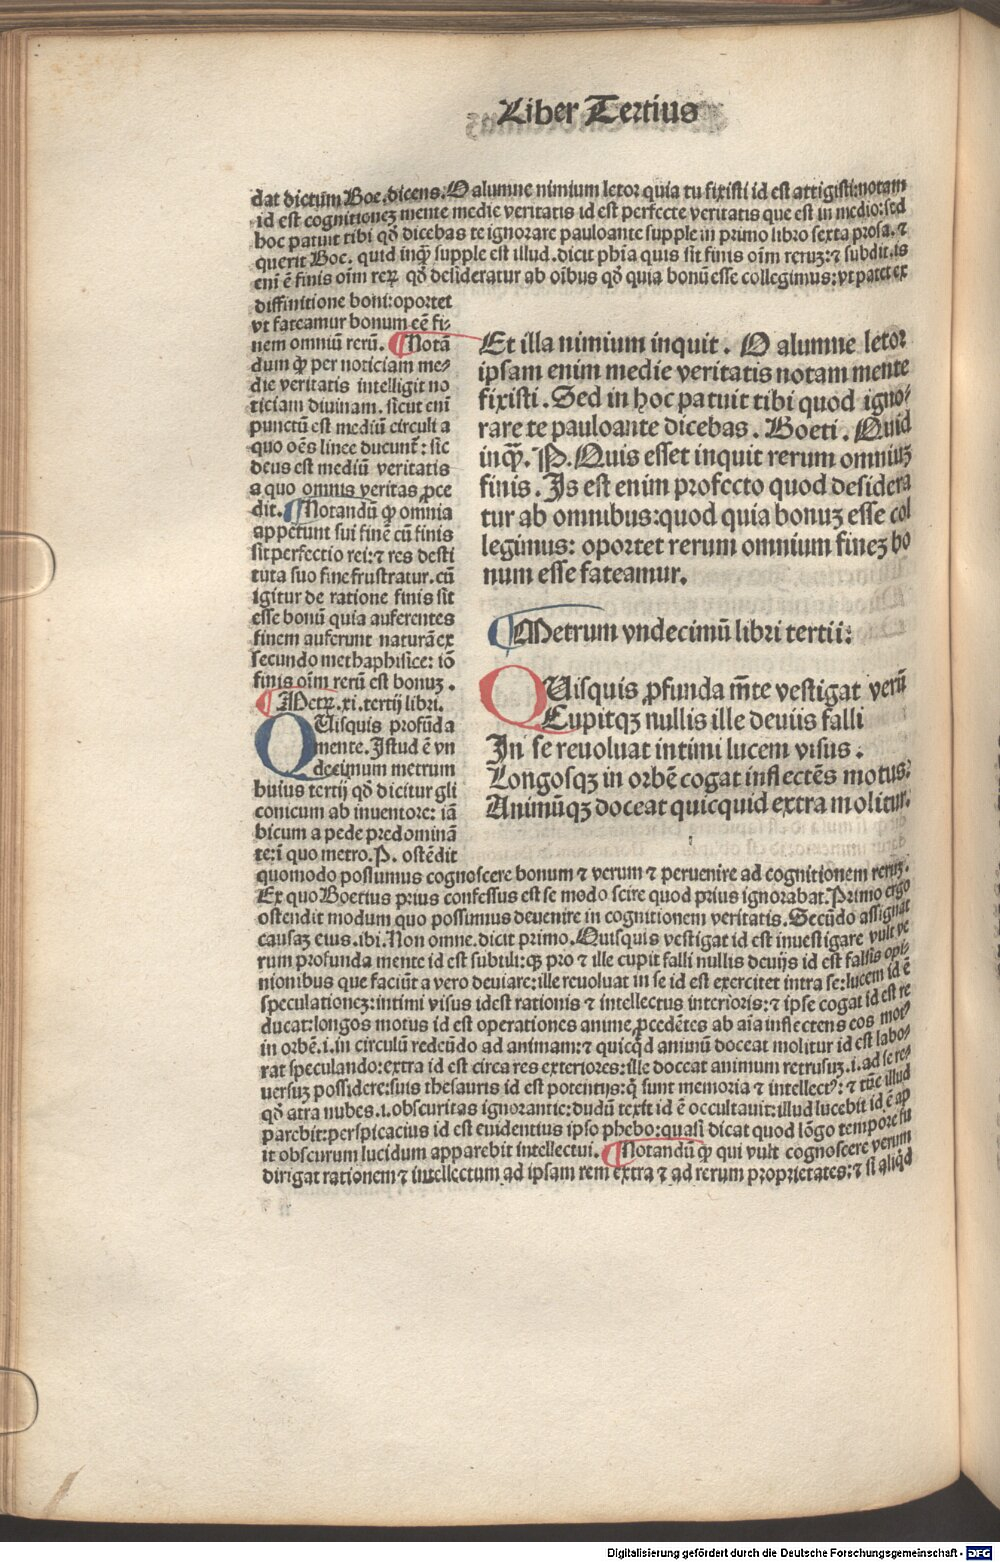 Liber Tertius
dat dictum Boe. dicens. O alumne nimium letor quia tu fixisti id est attigisti: notam
id est cognitionez mente medie veritatis id est perfecte veritatis que est in medio: sed
hoc patuit tibi qđ dicebas te ignorare pauloante supple in primo libro sexta prosa. ⁊
querit Boe. quid inqͥ supple est illud. dicit phīa quis sit finis oīm reruz: ⁊ subdit. is
enī ē finis oīm reꝝ qđ desideratur ab oībus qđ quia bonū esse collegimus: vt patet ex
diffinitione boni: oportet
vt fateamur bonum eē fi-
nem omniū rerū. ¶ Notā
dum ꝙ per noticiam me-
die veritatis intelligit no
ticiam diuinam. sicut enī
punctū est mediū circuli a
quo oēs linee ducunt̄: sic
deus est mediū veritatis
a quo omnis veritas ꝓce
dit. ¶ Notandū ꝙ omnia
appetunt sui finē cū finis
sit perfectio rei: ⁊ res desti
tuta suo fine frustratur. cū
igitur de ratione finis sit
esse bonū quia auferentes
finem auferunt naturā ex
secundo methaphisice: iō
finis oīm rerū est bonuz.
¶ Metꝝ. xi. tertij libri.
QUisquis profūda
mente. Istud ē vn
decimum metrum
huius tertij qđ dicitur gli
conicum ab inuentore: iā
bicum a pede predominā
te: ī quo metro. P. ostēdit
Et illa nimium inquit. O alumne letor
ipsam enim medie veritatis notam mente
fixisti. Sed in hoc patuit tibi quod igno-
rare te pauloante dicebas. Boeti. Quid
inqͥ. P. Quis esset inquit rerum omniuz
finis. Is est enim profecto quod desidera
tur ab omnibus: quod quia bonuz esse col
legimus: oportet rerum omnium finez bo
num esse fateamur.
¶ Metrum vndecimū libri tertii:
QUisquis ꝓfunda m̄te vestigat verū
Cupitqꝫ nullis ille deuiis falli
In se reuoluat intimi lucem visus.
Longosqꝫ in orbē cogat inflectēs motus:
Animūqꝫ doceat quicquid extra molitur.
quomodo possumus cognoscere bonum ⁊ verum ⁊ peruenire ad cognitionem reruz.
Ex quo Boetius prius confessus est se modo scire quod prius ignorabat. Primo ergo
ostendit modum quo possimus deuenire in cognitionem veritatis. Secūdo assignat
causaz eius. ibi. Non omne. dicit primo. Quisquis vestigat id est inuestigare vult ve
rum profunda mente id est subtili: qꝫ pro ⁊ ille cupit falli nullis deuijs id est falsis opi-
nionibus que faciūt a vero deuiare: ille reuoluat in se id est exercitet intra se: lucem id ē
speculationez: intimi visus idest rationis ⁊ intellectus interioris: ⁊ ipse cogat id est re
ducat: longos motus id est operationes anime ꝓcedētes ab aīa inflectens eos motꝰ
in orbē. i. in circulū redeūdo ad animam: ⁊ quicqͥd animū doceat molitur id est labo-
rat speculando: extra id est circa res exteriores: ille doceat animum retrusuz. i. ad se re-
versuz possidere: suis thesauris id est potentijs: q̄ sunt memoria ⁊ intellectꝰ: ⁊ tūc illud
qđ atra nubes. i. obscuritas ignorantie: dudū texit id ē occultauit: illud lucebit id ē ap
parebit: perspicacius id est euidentius ipso phebo: quasi dicat quod lōgo tempore fu
it obscurum lucidum apparebit intellectui. ¶ Notandū ꝙ qui vult cognoscere verum
dirigat rationem ⁊ intellectum ad ipsam rem extra ⁊ ad rerum proprietates: ⁊ si aliqͥd
Digitalisierung gefördert durch die Deutsche Forschungsgemeinschaft - DFG